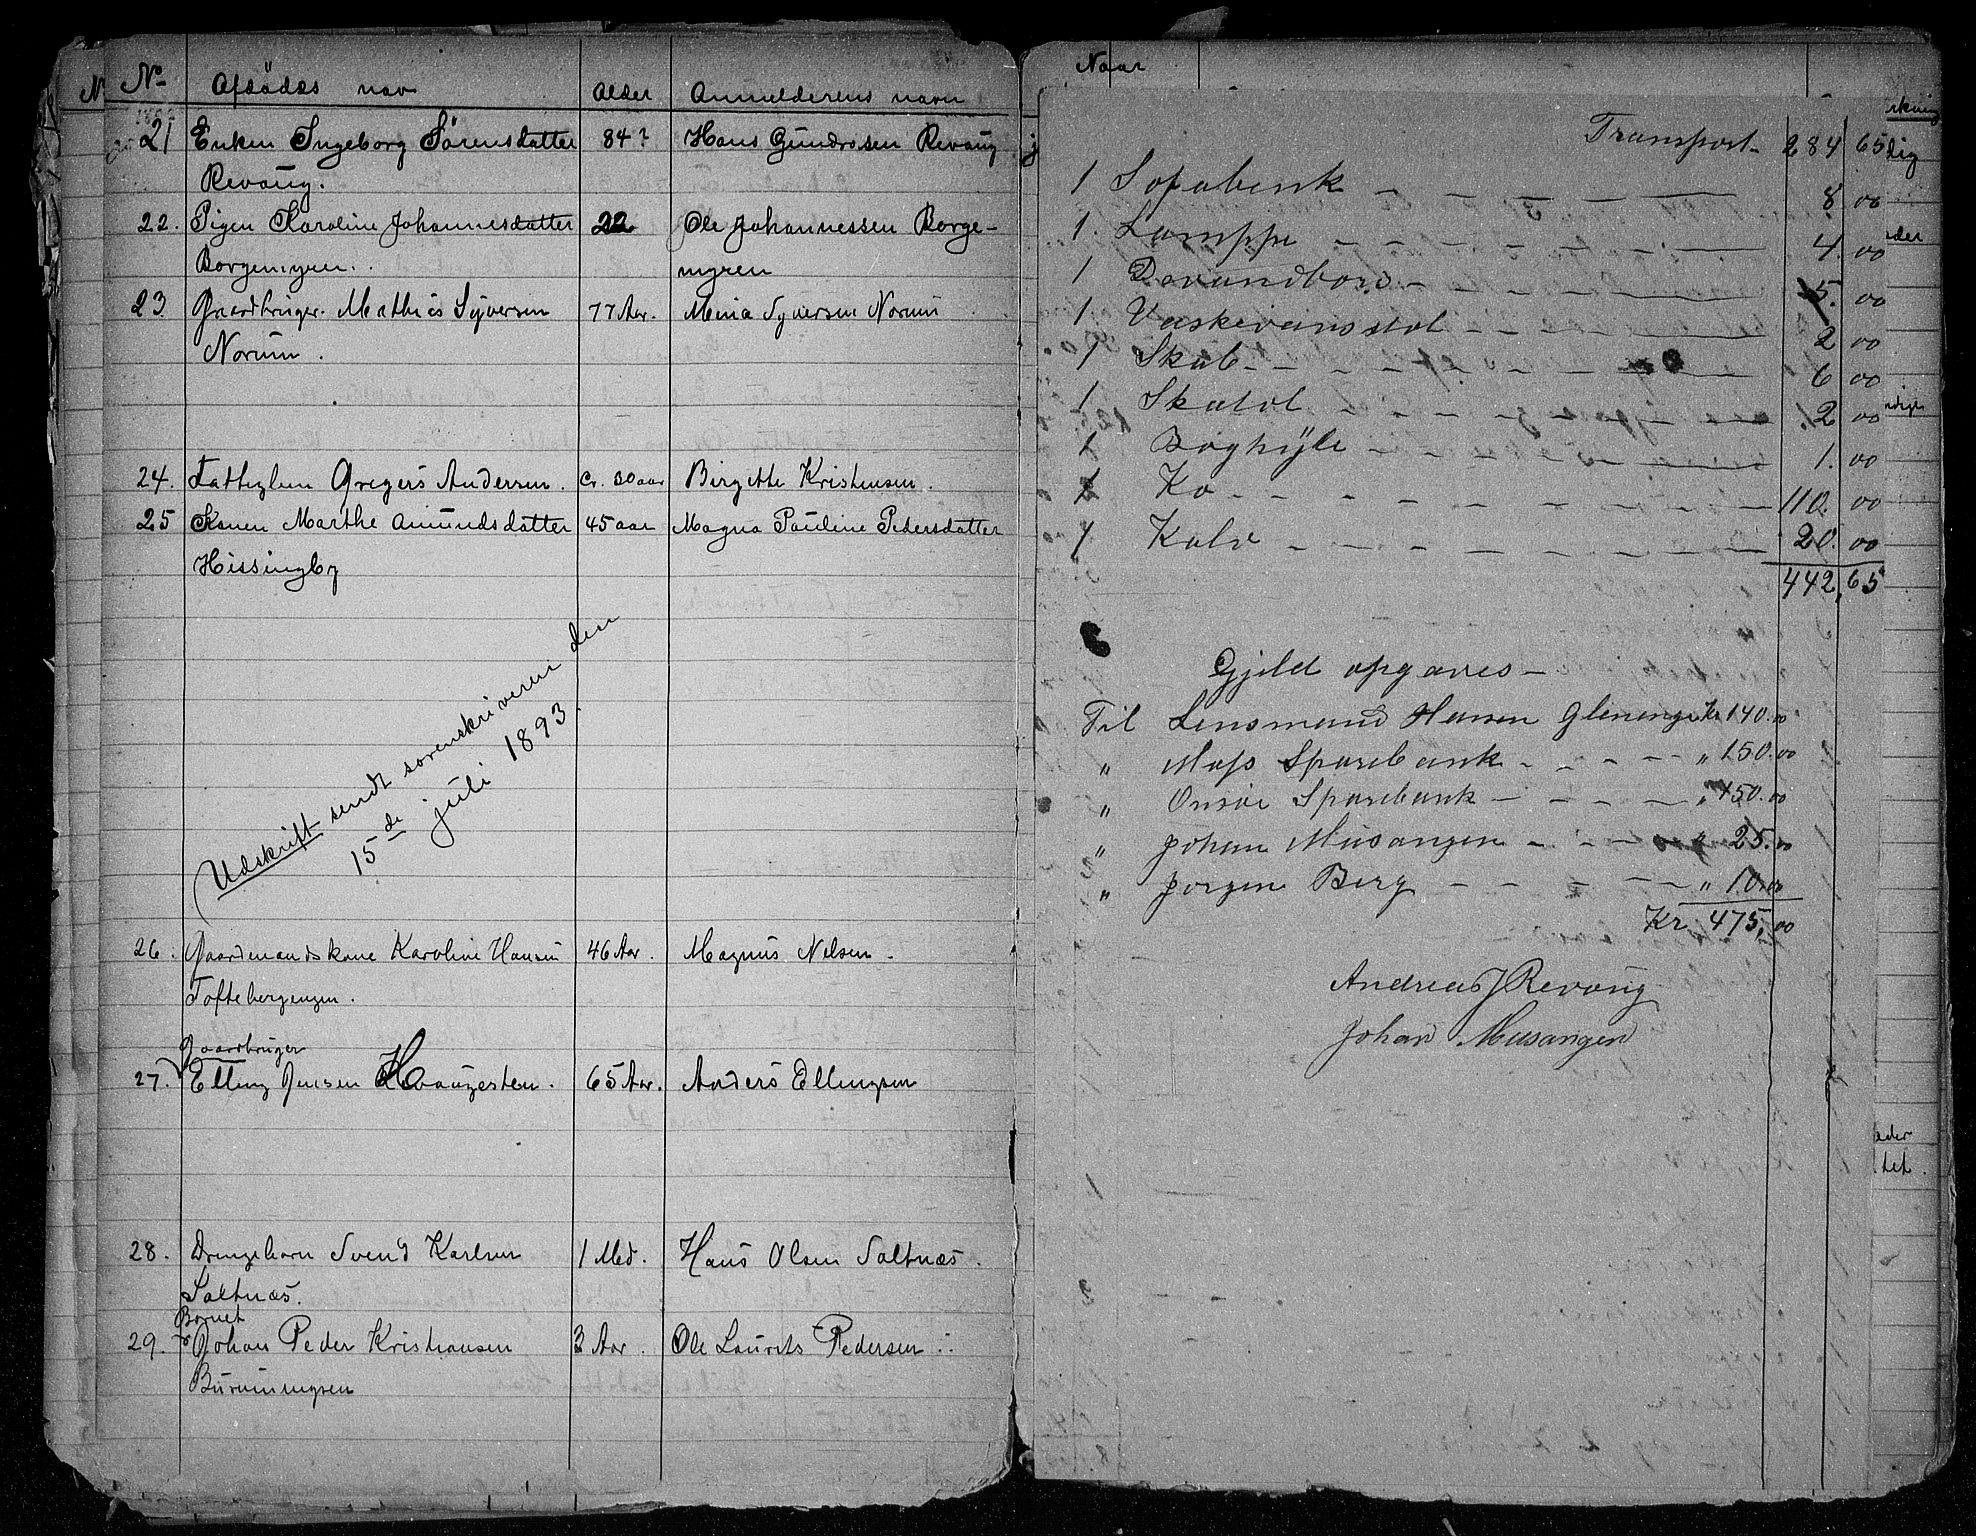 No Afdødes navn Alder Anmelderens navn
21 Enken Ingeborg Sørensdatter 84? Hans Gundrosen Revaug
Revaug.
22. Pigen Karoline Johannesdatter 22 Ole Johannessen Borge-
Borgemyren. myren
23 Gaardbruger. Mathias Syversen 77 Aar. Mina Syversen Norum
Norum.
24. Fattiglem Gregers Andersen. Cr. 80 aar Birgitte Kristensen.
25 Konen Marthe Amundsdatter 45 aar Magna Pauline Pedersdatter
Hissingby
Udskrift sendt sorenskriveren den
15de juli 1893.
26. Gaardmandskone Karoline Hansen 46 Aar. Magnus Nilsen.
Toftebergengen.
Gaardbruger
27. Elling Jensen Haaugesten. 65 Aar. Anders Ellingsen
28. Drengebarn Svend Karlsen 1 Md. Hans Olsen Saltnæs.
Saltnæs.
Barnet
29. Johan Peder Kristiansen 3 Aar. Ole Laurits Pedersen
Burummyren
Naar
Transport 284 65
1 Sofabenk 8 00
1 Lamppe 4. 00
1 Dovundbord 5. 00
1 Vaskevansstol 2 00
1 Skab 6 00
1 Skatol 2 00
1 Boghyle 1. 00
1 Ko 110. 00
1 Kalv 20. 00
442,65
Gjeld opgaves
Til Lensmand Hansen Glenenge Kr 140.00
„ Moss Sparebank „ 150.00
„ Onsøe Sparebank „ 150.00
„ Johan Musangen „ 25.00
„ Jorgen Berg „ 10.00
Kr 475,00
Andreas J Revoug
Johan Musangen